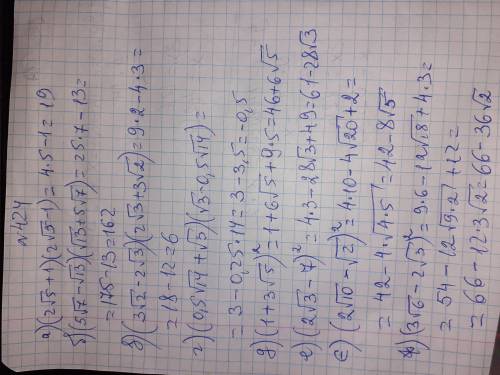 №424
а) (2√5+1)(2√5-1) = 4·5-1 = 19
б) (5√7-√13)(√13+5√7) = 25·7-13 =
= 175-13=162
в) (3√2-2√3)(2√3+3√2) = 9·2-4·3 =
= 18-12=6
г) (0,5√14+√3)(√3-0,5√14) =
= 3-0,25·14 = 3-3,5 = -0,5
д) (1+3√5)² = 1+6√5+9·5 = 46+6√5
е) (2√3-7)² = 4·3-28√3+49 = 61-28√3
є) (2√10-√2)² = 4·10-4√20+2 =
= 42-4√4·5 = 42-8√5
ж) (3√6-2√3)² = 9·6-12√18+4·3 =
= 54-12√9·2+12 =
= 66-12·3√2 = 66-36√2